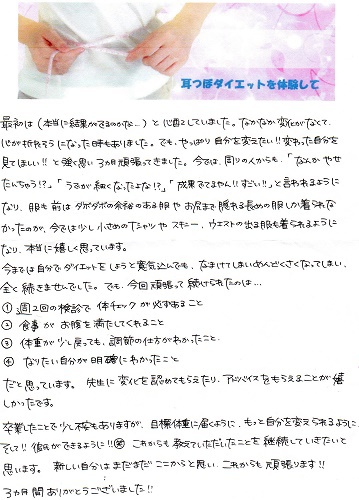 耳つぼダイエットを体験して
最初は(本当に結果がでるのかな…)と心配としていました。なかなか変化がなくて、
心が折れそうになった時もありました。でも、やっぱり自分を変えたい!!変わった自分を
見てほしい!!と強く思い3ヵ月頑張ってきました。今では、周りの人からも、「なんか やせ
たんちゃう!?」「うでが細くなったよな!?」「成果でてるやん!!すごい!!」と言われるように
なり、服も前はダボダボの余裕のある服やお尻まで隠れる長めの服しか着られな
かったのが、今では少し小さめのTシャツやスキニー、ウエストの出る服も着られるように
なり、本当に嬉しく思っています。
今までは自分でダイエットをしようと意気込んでも、なまけてしまいめんどくさくなってしまい、
全く続きませんでした。でも、今回頑張って続けられたのは…
① 週2回の検診で体チェックが必ずあること
② 食事がお腹を満たしてくれること
③ 体重が少し戻っても、調節の仕方がわかったこと
④ なりたい自分が明確にわかったこと
だと思っています。先生に変化を認めてもらえたり、アドバイスをもらえることが嬉
しかったです。
卒業したことで少し不安もありますが、目標体重に届くように、もっと自分を変えられるように、
そして!!彼氏ができるように!!これからも教えていただいたことを継続していきたいと
思います。新しい自分はまだまだここからと思い、これからも頑張ります!!
3ヵ月間ありがとうございました!!